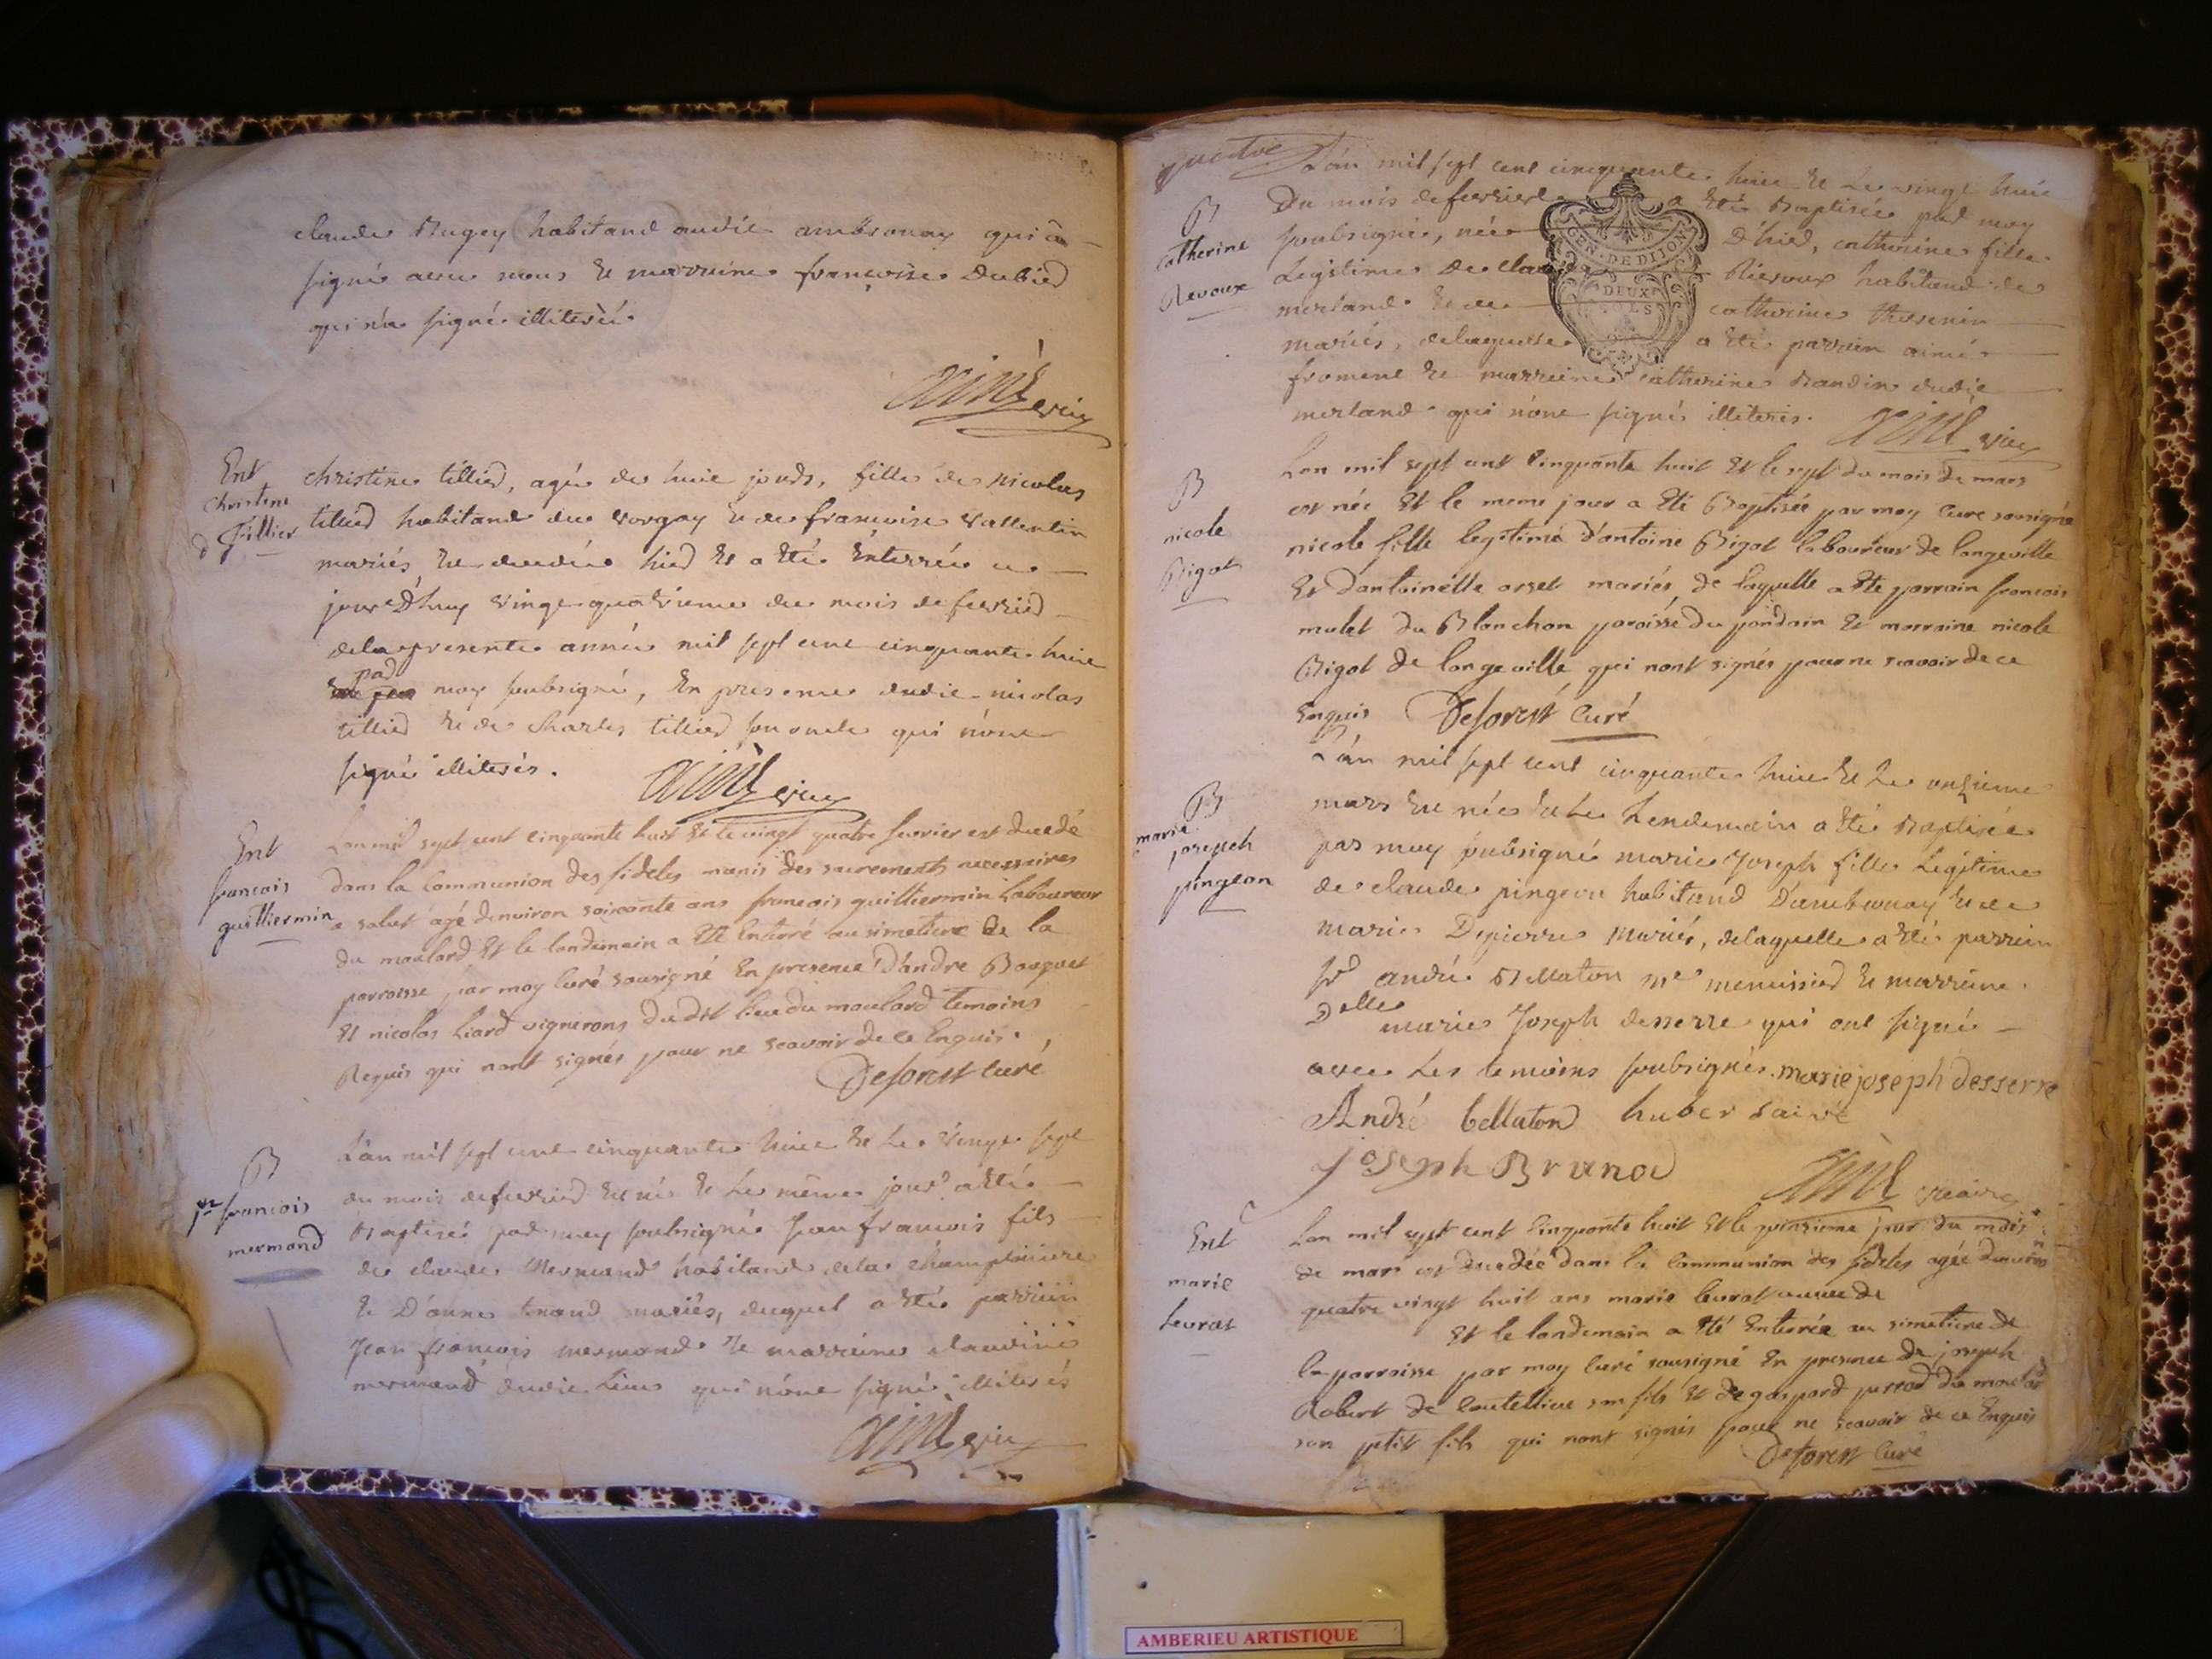 claude Bugey habitand audit ambronay qui a
signé avec nous et marraine françoise Dubied
qui n'a signé illiterée
aimé vic
Ent
christine
d Tillier
christine tillied, agée de huit jours, fille de nicolas
tillied habitand du vorgey et de francoise vallentin
mariés est decedée hied et a été Enterrée ce
jourd'huy vingt quatrieme du mois de fevried
dela presente année mil sept cent cinquante huit
pad
moy soubsigné, En presence dudit nicolas
tillied et de Charles tillied son oncle qui n'ont
signé illiterés.
aimé vic
Ent
francois
guilliermin
Lan mil sept cent cinquante huit Et le vingt quatre fevrier est decedé
dans la Communion des fideles munis des sacrements necessaires
a salut agé denviron soixante ans francois guilliermin Laboureur
du moulard Et le landemain a Eté Enterré au simetiere de la
parroisse par moy Curé sousigné En presence d'andre Bouquet
Et nicolas Liard vignerons dudit lieu du moulard temoins
Requis qui nont signés pour ne scavoir de ce Enquis.
Deforest Curé
B
jn francois
mermand
L'an mil sept cent cinquante huit et Le vingt sept
du mois de fevried est né et Le même jour a été
Baptisé pad moy soubsigné Jean francois fils
de claude Mermand habitand dela champlaniere
et D'anne tenand mariés, duquel a été parrein
Jean francois mermand et marreine claudine
mermand dudit Lieu qui n'ont signé illiterés
aimé vic
quatre
B
catherine
Revoux
L'an mil sept cent cinquante huit et Le vingt huit
Du mois de fevried a été Baptisée pad moy
soubsigné, née D'hied, catherine fille
Legitime De claude Rievoux habitand de
merland et de catherine Thevenin
mariés, delaquelle a été parrein aimé
froment et marreine catherine Baudin dudit
merland qui n'ont signé illiterés.
aimé vic
GEN. DE DIJON
DEUX
SOLS
B
nicole
Bigot
Lan mil sept cent Cinquante huit Et le sept du mois de mars
est née Et le meme jour a Eté Baptisée par moy Curé sousigné
nicole fille legitime d'antoine Bigot laboureur de longeville
Et d'antoinette orset mariés, de laquelle a Eté parrain francois
mulet du Blanchon paroisse du pondain Et marraine nicole
Bigot de longeville qui nont signés pour ne scavoir de ce
Enquis Deforest Curé
B
marie
joseph
pingeon
L'an mil sept cent cinquante huit et Le onzieme
mars est née et Le Lendemain a été Baptisée
par moy soubsigné marie Joseph fille Legitime
de claude pingeon habitand D'ambronay et de
marie Depierre mariés, delaquelle a été parrein
sr andré Bellaton me menuisied et marreine
Delle marie Joseph desserre qui ont signé
avec Les temoins soubsignés. marie joseph desserre
André bellaton huber saive
joseph Brunod
aimé vicaire
Ent
marie
Levrat
Lan mil sept cent Cinquante huit Et le quinzieme jour du mois
de mars est decedée dans la Communion des fideles agée denviron
quatre vingt huit ans marie levrat veuve de
Et le landemain a été Enterrée au simetiere de
la parroisse par moy Curé sousigné En presence de joseph
Robert de Coutelieue son fils Et de gaspard perrod du moulard
son petit fils qui nont signés pour ne scavoir de ce Enquis
Deforest Curé
AMBERIEU ARTISTIQUE